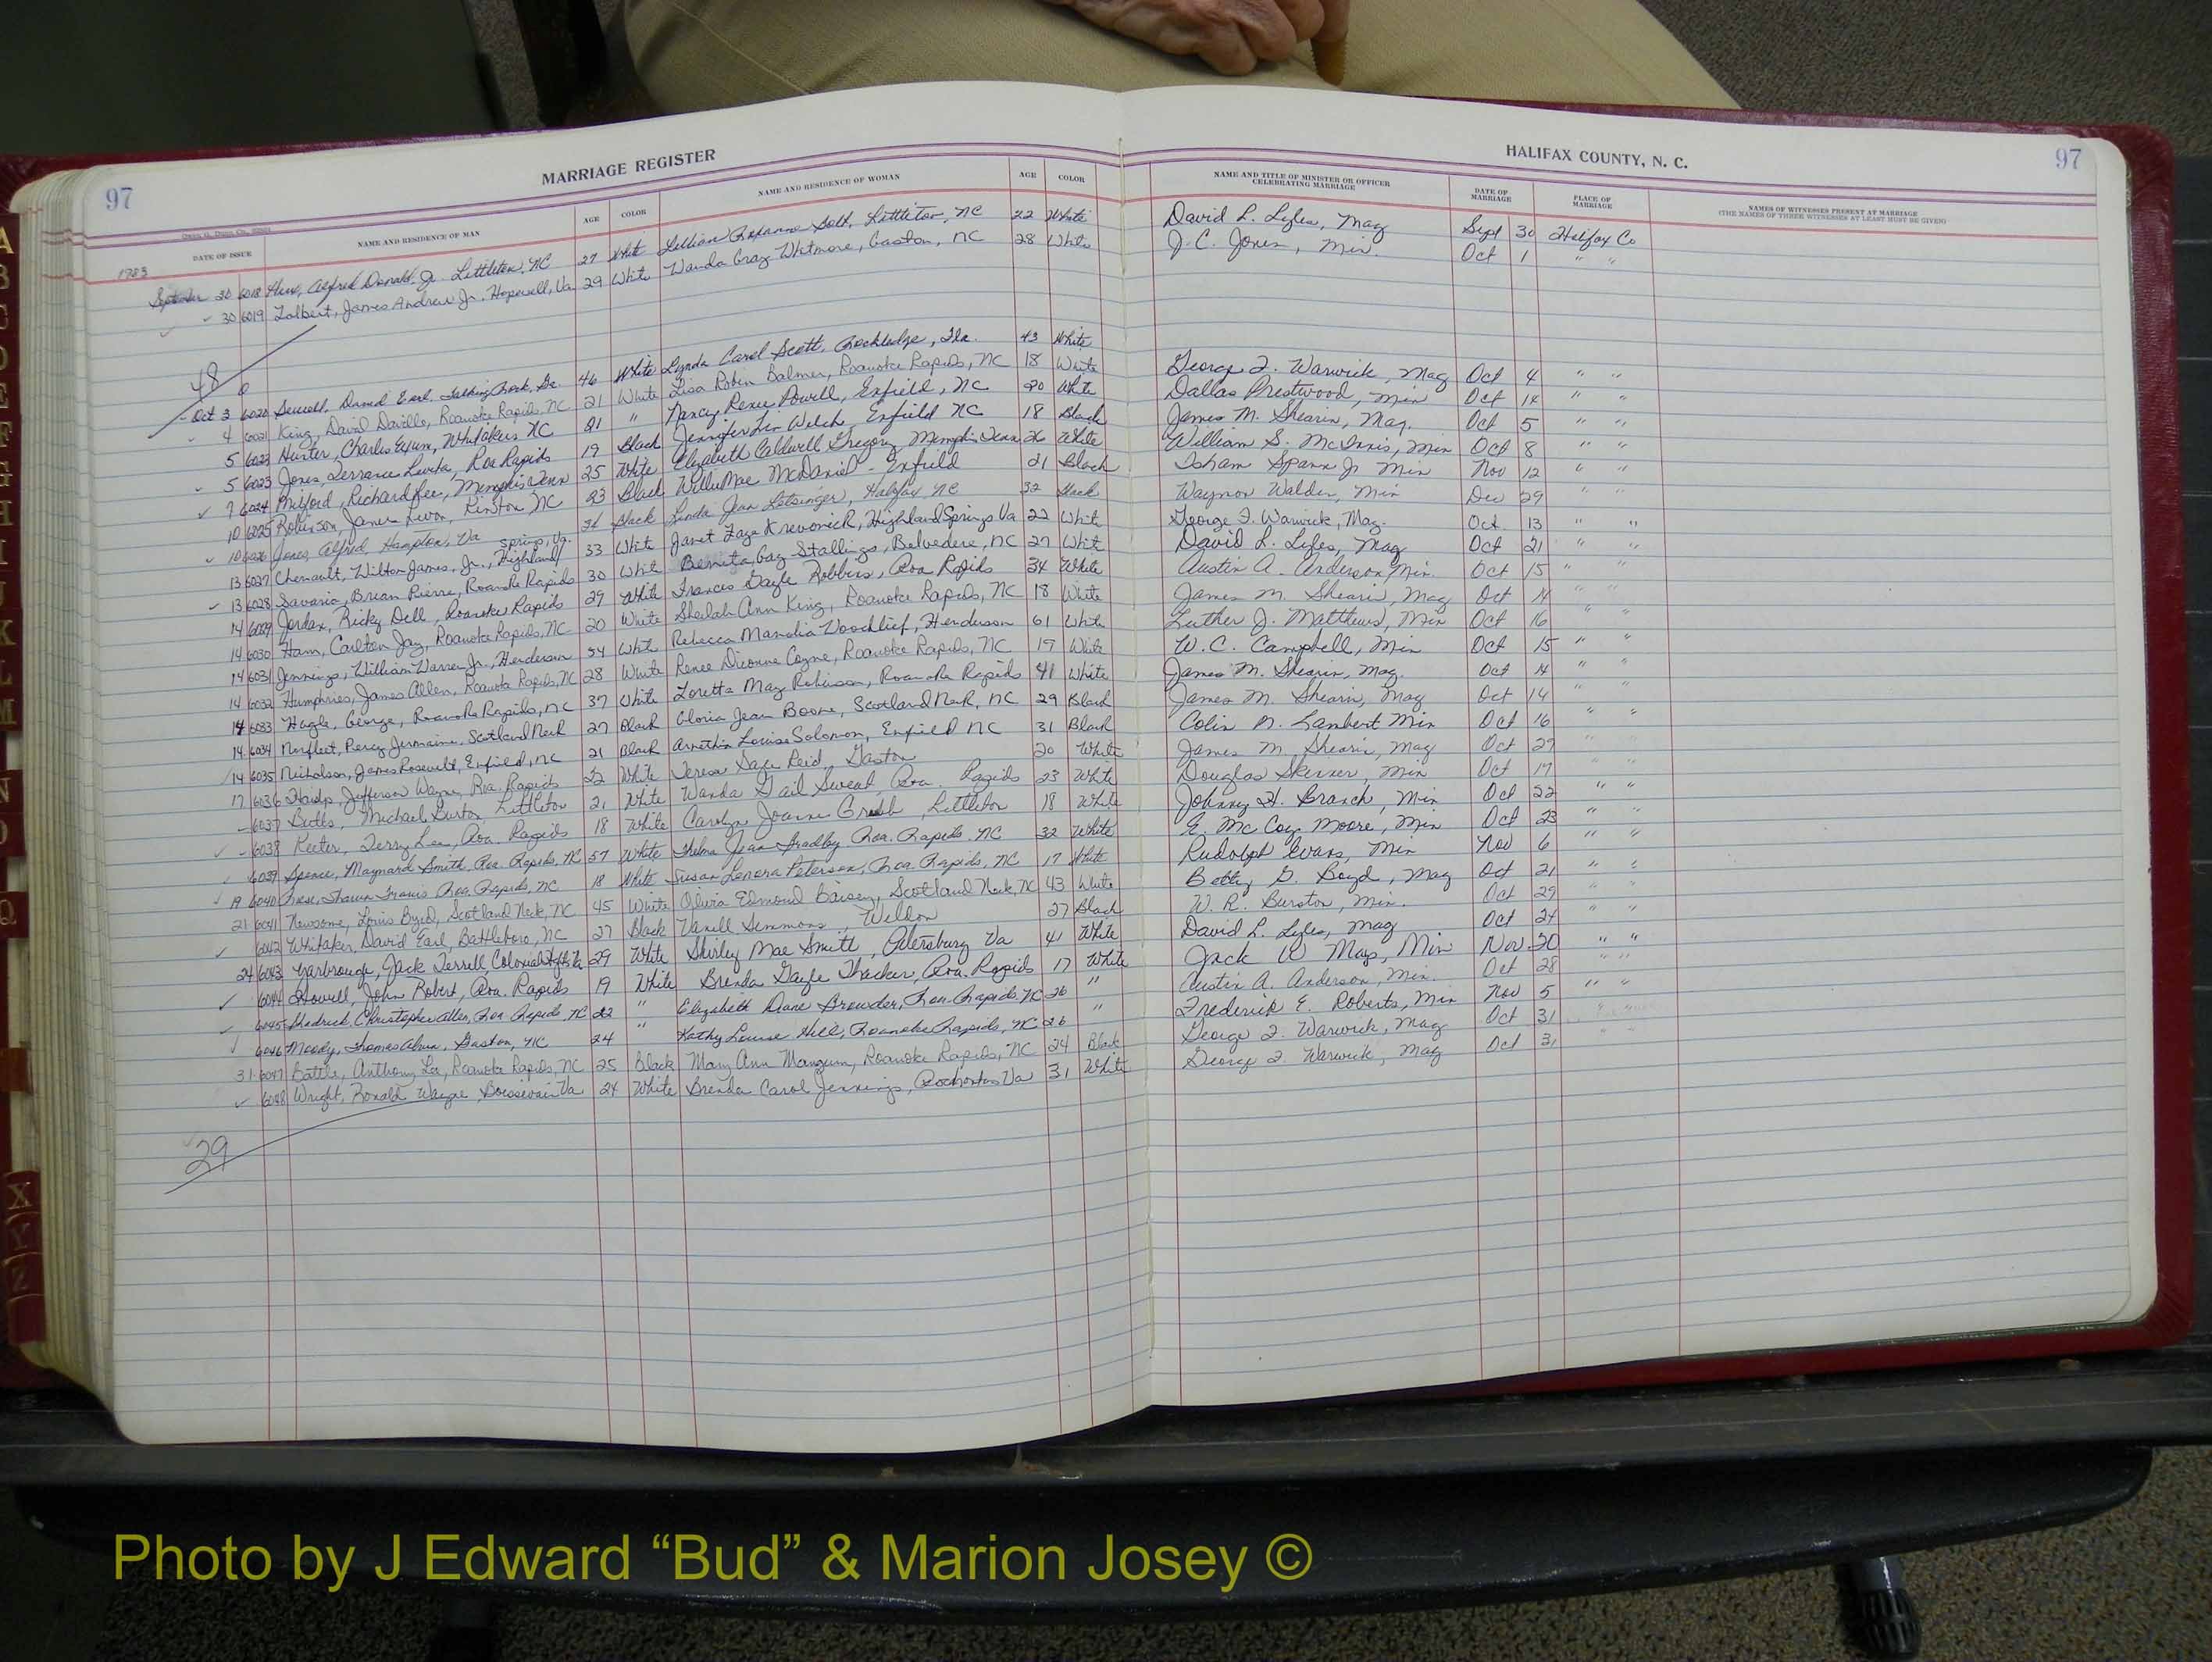 97 MARRIAGE REGISTER
HALIFAX COUNTY, N. C. 97
DATE OF ISSUE NAME AND RESIDENCE OF MAN AGE COLOR NAME AND RESIDENCE OF WOMAN AGE COLOR NAME AND TITLE OF MINISTER OR OFFICER CELEBRATING MARRIAGE DATE OF MARRIAGE PLACE OF MARRIAGE NAMES OF WITNESSES PRESENT AT MARRIAGE (THE NAMES OF THREE WITNESSES AT LEAST MUST BE GIVEN)
1983
September 30 6018 Alfred Donald, Jr. Littleton, NC 27 White Lillian Roxanna Littleton, NC 22 White David L. Lyles, Mag Sept 30 Halifax Co
30 6019 Talbert, James Andrew Jr. Hopewell, Va 29 White Wanda Gray Whitmore, Gaston, NC 28 White J. C. Jones, Min. Oct 1 " "
48
Oct 3 6020 Sewell, David Earl, Talking Rock, Ga. 46 White Lynda Carol Scott, Rockledge, Fla. 43 White George F. Warwick, Mag Oct 4 " "
4 6021 King, David Roanoke Rapids, NC 21 White Lisa Robin Balmer, Roanoke Rapids, NC 18 White Dallas Prestwood, Min Oct 14 " "
5 6022 Hunter, Charles Whitakers NC 21 " Nancy Renee Powell, Enfield, NC 20 White James M. Shearin, Mag. Oct 5 " "
5 6023 Jones, Terrance Roa Rapids 19 Black Jennifer Welch, Enfield NC 18 Black William S. McInnis, Min Oct 8 " "
7 6024 Milford, Richard Lee, Memphis Tenn 25 White Elizabeth Caldwell Gregory, Memphis Tenn 26 White Isham Spann Jr Min Nov 12 " "
10 6025 Robinson, James Kinston, NC 23 Black Willie Mae McDaniel - Enfield 21 Black Waymon Walden, Min Dec 29 " "
10 6026 Jones, Alfred, Hampton, Va Black Linda Jean Halifax NC 32 Black George F. Warwick, Mag. Oct. 13 " "
13 6027 Chenault, Wilton James, Jr., Highland Springs, Va. 33 White Janet Faye Highland Springs Va 22 White David L. Lyles, Mag Oct 21 " "
13 6028 Savaria, Brian Pierre, Roanoke Rapids 30 White Benita Gay Stallings, Belvedere, NC 27 White Austin A. Anderson, Min. Oct 15 " "
14 6029 Jordan, Ricky Dell, Roanoke Rapids 29 White Frances Gayle Robbins, Roa Rapids 34 White James M. Shearin, Mag Oct 14 " "
14 6030 Ham, Carlton Jay, Roanoke Rapids, NC 20 White Sheilah Ann King, Roanoke Rapids, NC 18 White Luther J. Matthews, Min Oct 16 " "
14 6031 Jennings, William Warren Jr., Henderson 54 White Rebecca Woodlief, Henderson 61 White W. C. Campbell, Min Oct 15 " "
14 6032 Humphries, James Allen, Roanoke Rapids, NC 28 White Renee Coyne, Roanoke Rapids, NC 19 White James M. Shearin, Mag. Oct 14 " "
14 6033 George, Roanoke Rapids, NC 37 White Loretta May Robinson, Roanoke Rapids 41 White James M. Shearin, Mag Oct 14 " "
14 6034 Norfleet, Percy Jermaine, Scotland Neck 27 Black Gloria Jean Boone, Scotland Neck, NC 29 Black Colin N. Lambert Min Oct 16 " "
14 6035 Nicholson, James Rosevelt, Enfield, NC 21 Black Louise Solomon, Enfield NC 31 Black James M. Shearin, Mag Oct 27 " "
17 6036 Jefferson Wayne, Roa. Rapids 22 White Teresa Reid, Gaston 20 White Douglas Skinner, Min Oct 17 " "
6037 Butts, Michael Burton, Littleton 21 White Wanda Gail Sweat Roa. Rapids 23 White Johnny H. Branch, Min Oct 22 " "
6038 Keeter, Terry Lee, Roa. Rapids 18 White Carolyn Joanne Littleton 18 White E. McCoy Moore, Min Oct 23 " "
6039 Spence, Maynard Smith, Roa. Rapids, NC 57 White Thelma Jean Bradley, Roa. Rapids, NC 32 White Rudolph Evans, Min Nov 6 " "
19 6040 Shawn Travis Roa. Rapids, NC 18 White Susan Lenora Peterson, Roa. Rapids, NC 17 White Betty G. Boyd, Mag Oct 21 " "
21 6041 Newsome, Louis Byrd, Scotland Neck, NC 45 White Olivia Edmond Scotland Neck, NC 43 White W. R. Burston, Min. Oct 29 " "
6042 Whitaker, David Earl, Battleboro, NC 27 Black Simmons, Weldon 27 Black David L. Lyles, Mag Oct 24 " "
24 6043 Yarbrough, Jack Terrell, Colonial Hghts Va 29 White Shirley Mae Smith, Petersburg Va 41 White Jack W May, Min Nov. 20 " "
6044 Howell, John Robert, Roa. Rapids 19 White Brenda Gayle Thacker, Roa. Rapids 17 White Austin A. Anderson, Min. Oct 28 " "
6045 Shedrick, Christopher Allen, Roa Rapids, NC 22 " Elizabeth Diane Browder, Roa. Rapids, NC 26 " Frederick E. Roberts, Min Nov 5 " "
6046 Moody, Thomas Gaston, NC 24 " Kathy Louise Hill, Roanoke Rapids, NC 26 " George F. Warwick, Mag Oct 31
31 6047 Battle, Anthony Lee, Roanoke Rapids, NC 25 Black Mary Ann Mangum, Roanoke Rapids, NC 24 Black George F. Warwick, Mag Oct 31 " "
6048 Wright, Ronald Wayne, Boissevain Va 24 White Brenda Carol Jennings, Pocahontas Va 31 White
29
Photo by J Edward “Bud” & Marion Josey ©